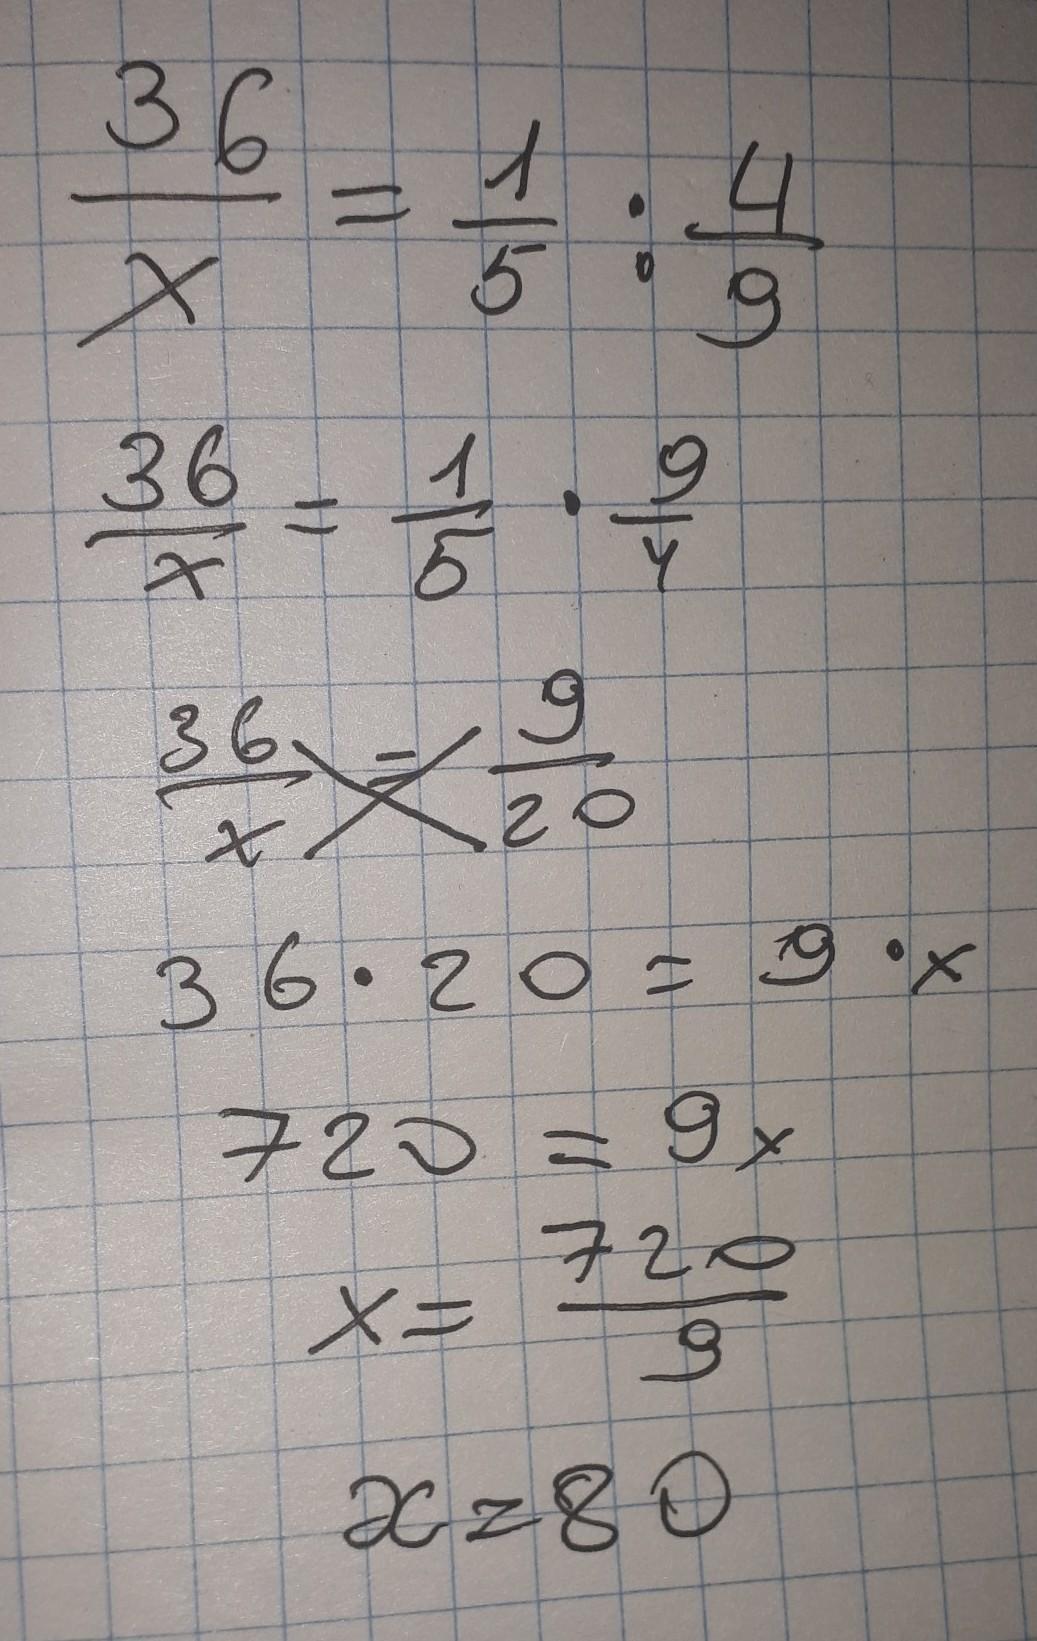 36/x = 1/5 : 4/9
36/x = 1/5 · 9/4
36/x = 9/20
36 · 20 = 9 · x
720 = 9x
x = 720/9
x = 80